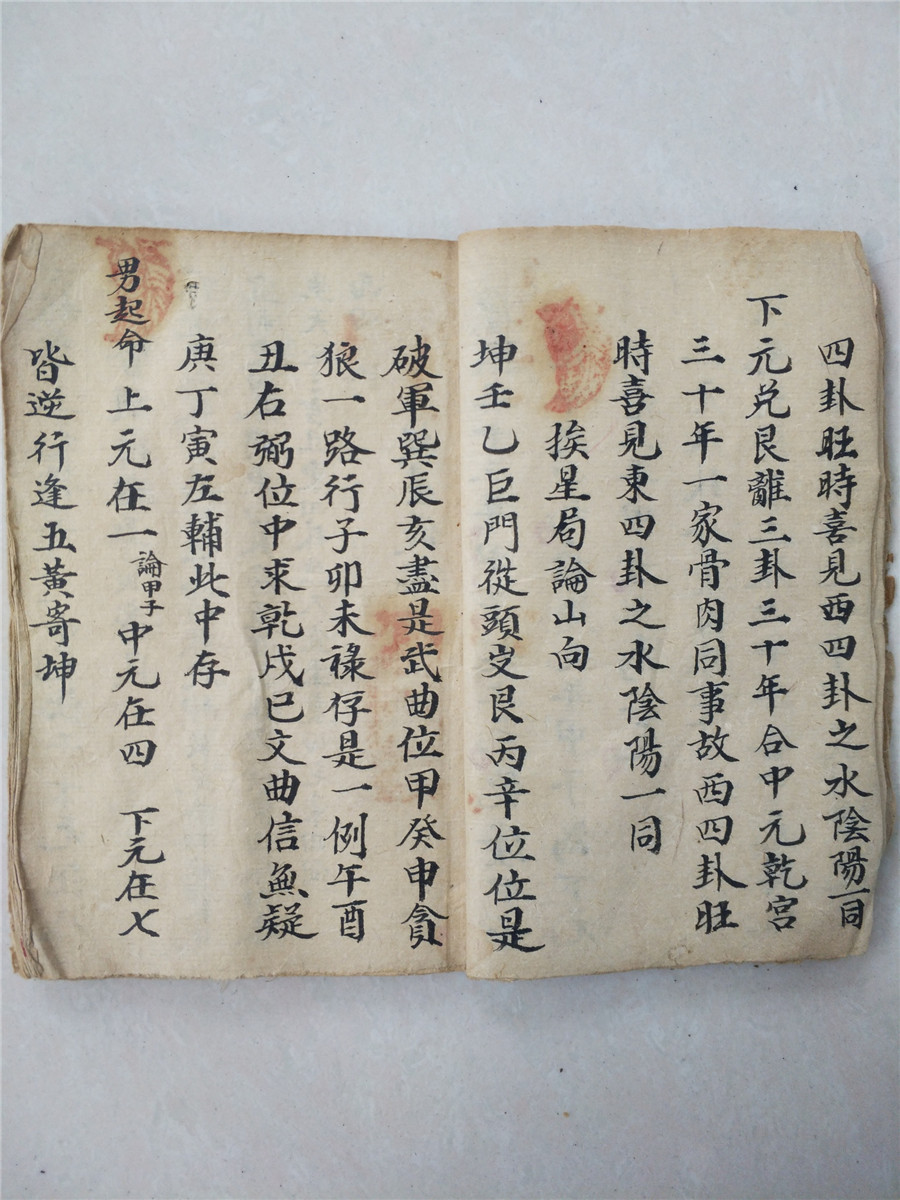 四卦旺時喜見西四卦之水陰陽一同
下元兌艮離三卦三十年合中元乾宮
三十年一家骨肉同事故西四卦旺
時喜見東四卦之水陰陽一同
挨星局論山向
坤壬乙巨門從頭岀艮丙辛位位是
破軍巽辰亥盡是武曲位甲癸申貪
狼一路行子卯未祿存是一例午酉
丑右弼位中求乾戌巳文曲信無疑
庚丁寅左輔此中存
男起命 上元在一 論甲子 中元在四 下元在七
皆逆行逢五黃寄坤